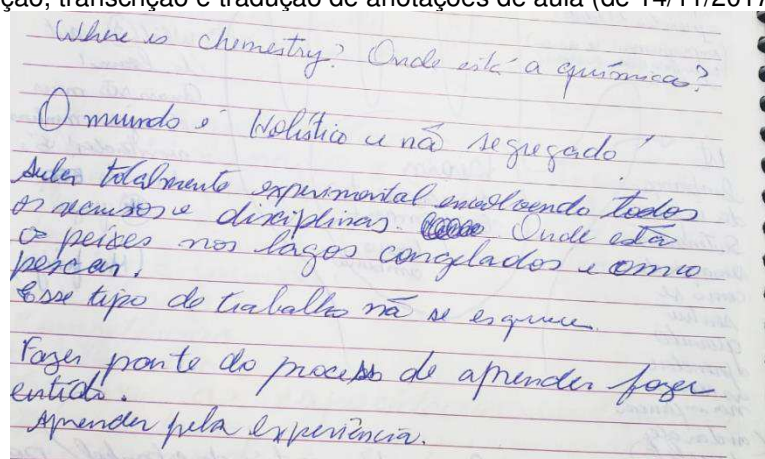 ção, transcrição e tradução de anotações de aula (de 14/11/2017
Where is chemestry? Onde está a química?
O mundo é Holístico e não segregado!
Aulas totalmente experimental envolvendo todos
os recursos e disciplinas. Onde estão
os peixes nos lagos congelados e como
pescar.
Esse tipo de trabalho não se esquece.
Fazer parte do processo de aprender fazer
entido.
Aprender pela experiência.